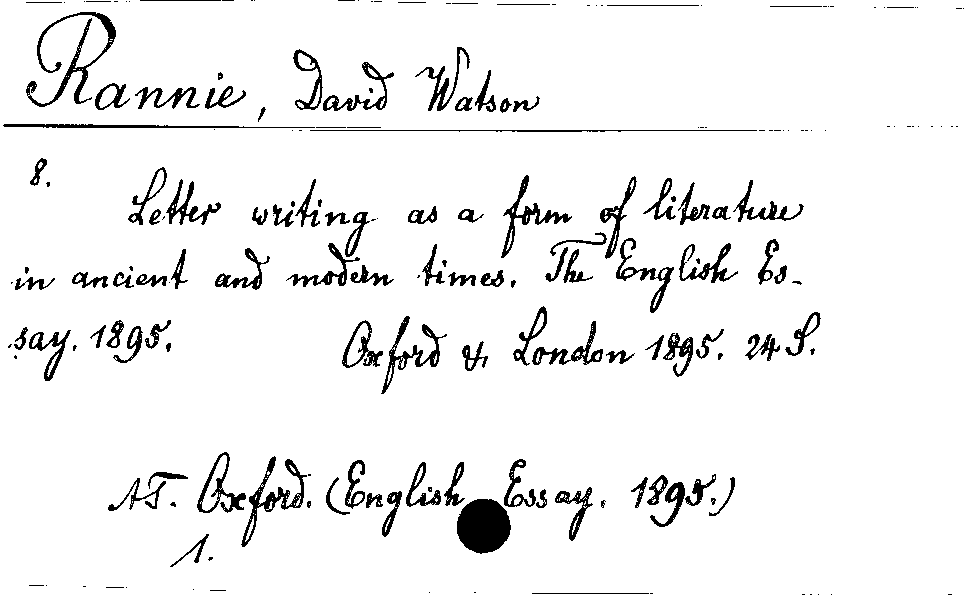 Rannie, David Watson
8.
Letter writing as a form of literature
in ancient and modern times. The English Es-
say. 1895. Oxford & London 1895. 24 S.
AT. Oxford. (English Essay. 1895.)
1.